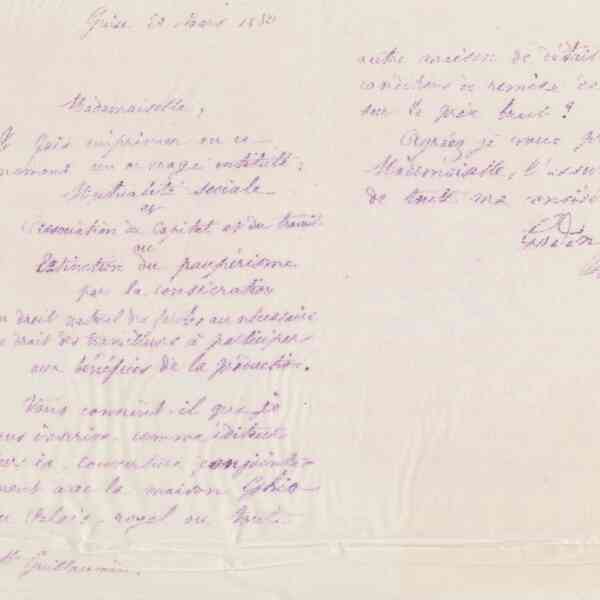 Guise 20 Mars 1880
Mademoiselle,
Je fais imprimer en ce
moment un ouvrage intitulé:
Mutualité sociale
et
Association du Capital et du travail
ou
Extinction du paupérisme
par la consécration
du droit naturel des faibles au nécessaire
droit des travailleurs à participer
aux bénéfices de la production.
Vous convient-il que je
vous inscrive comme éditeur
sur la couverture conjointe-
ment avec la maison Ghio
au Palais-royal ou toute
Mlle Guillaumin.
autre maison de
conditions de remise
sur le prix brut?
Agréez je vous
Mademoiselle, l'
de toute ma
Godin